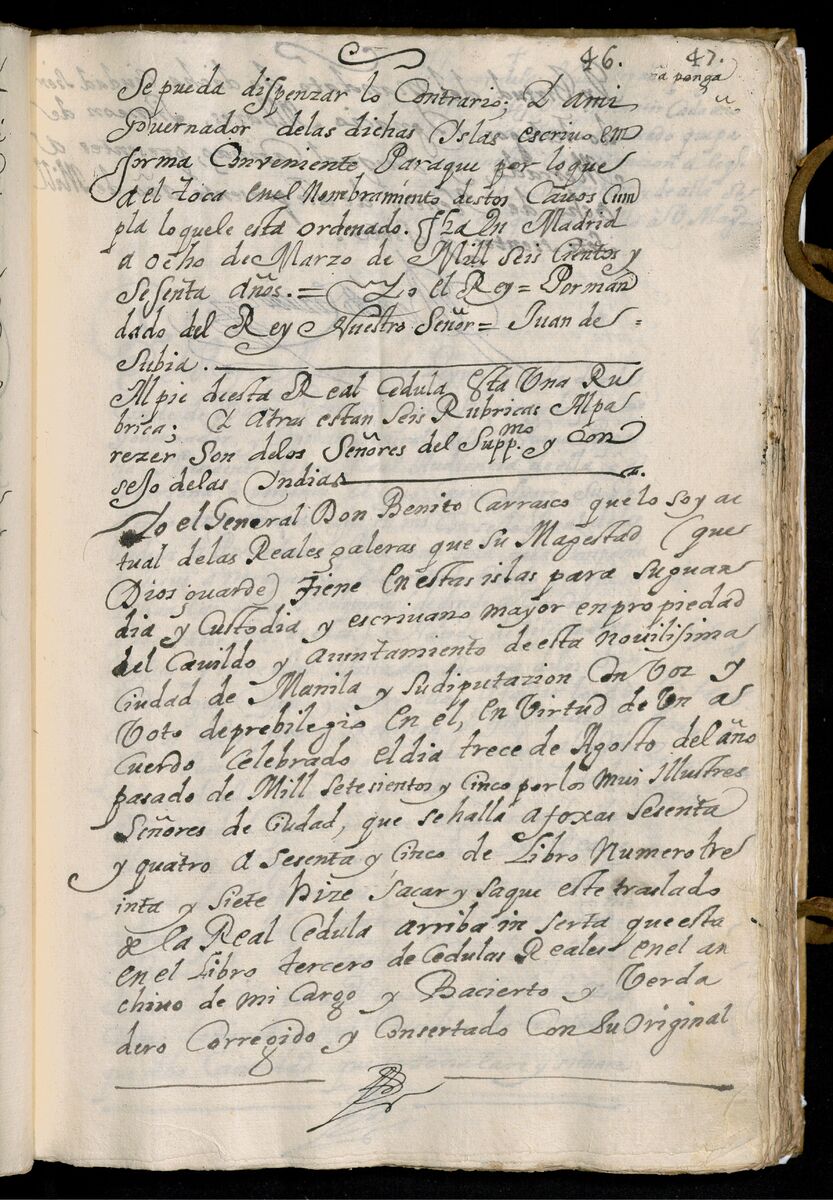 46. 47.
na ponga
Se pueda dispenzar lo Contrario; Y ami
Governador delas dichas Yslas escrivo en
forma Conveniente Paraque por loque
a el toca en el Nombramiento destos Cavos Cum
pla loquele esta ordenado. ffha En Madrid
a ocho de Marzo de Mill seis cientos y
Sesenta años. = Yo el Rey = Porman
dado del Rey Nuestro Señor = Juan de =
Subia.
Alpie de esta Real Cedula esta Una Ru
brica; Y atras estan seis Rubricas Alpa
rezer Son delos Señores del Suppmo. y Con
sejo delas Yndias
Yo el General Don Benito Carrasco que lo soy ac
tual delas Reales galeras que su Magestad (que
Dios guarde) tiene en estas islas para suguar
dia y Custodia y escrivano mayor en propiedad
del Cavildo y Ayuntamiento de esta novilisima
Ciudad de Manila y sudiputazion Con Voz y
Voto deprebilegio en el, en Virtud de Un a
Cuerdo Celebrado el dia trece de Agosto del año
pasado de Mill setesientos y Cinco por los mui Illustres
Señores de Ciudad, que se halla a foxas sesenta
y quatro a sesenta y Cinco de Libro Numero tre
inta y siete hize sacar y saque este traslado
de la Real Cedula arriba in serta que esta
en el Libro tercero de Cedulas Reales en el ar
chivo de mi Cargo y Bacierto y Verda
dero Corregido y Consertado Con Su Original